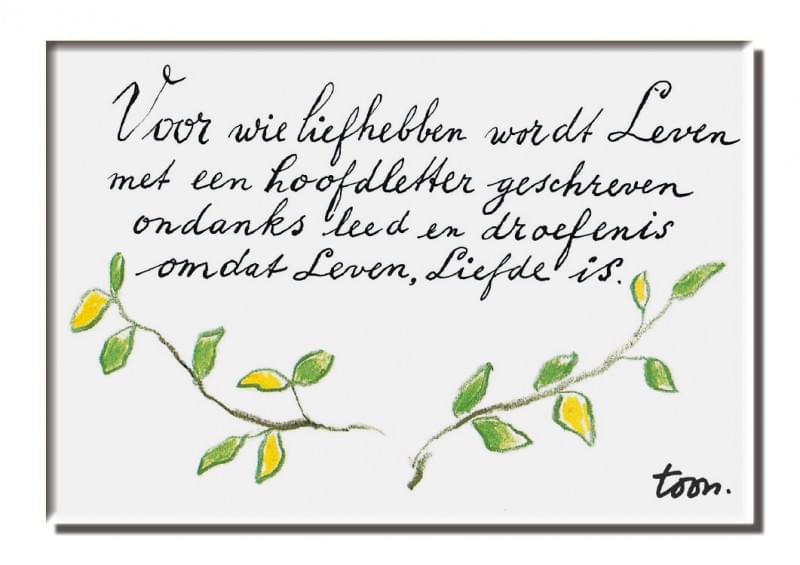 Voor wie liefhebben wordt Leven
met een hoofdletter geschreven
ondanks leed en droefenis
omdat Leven, Liefde is.
toon.